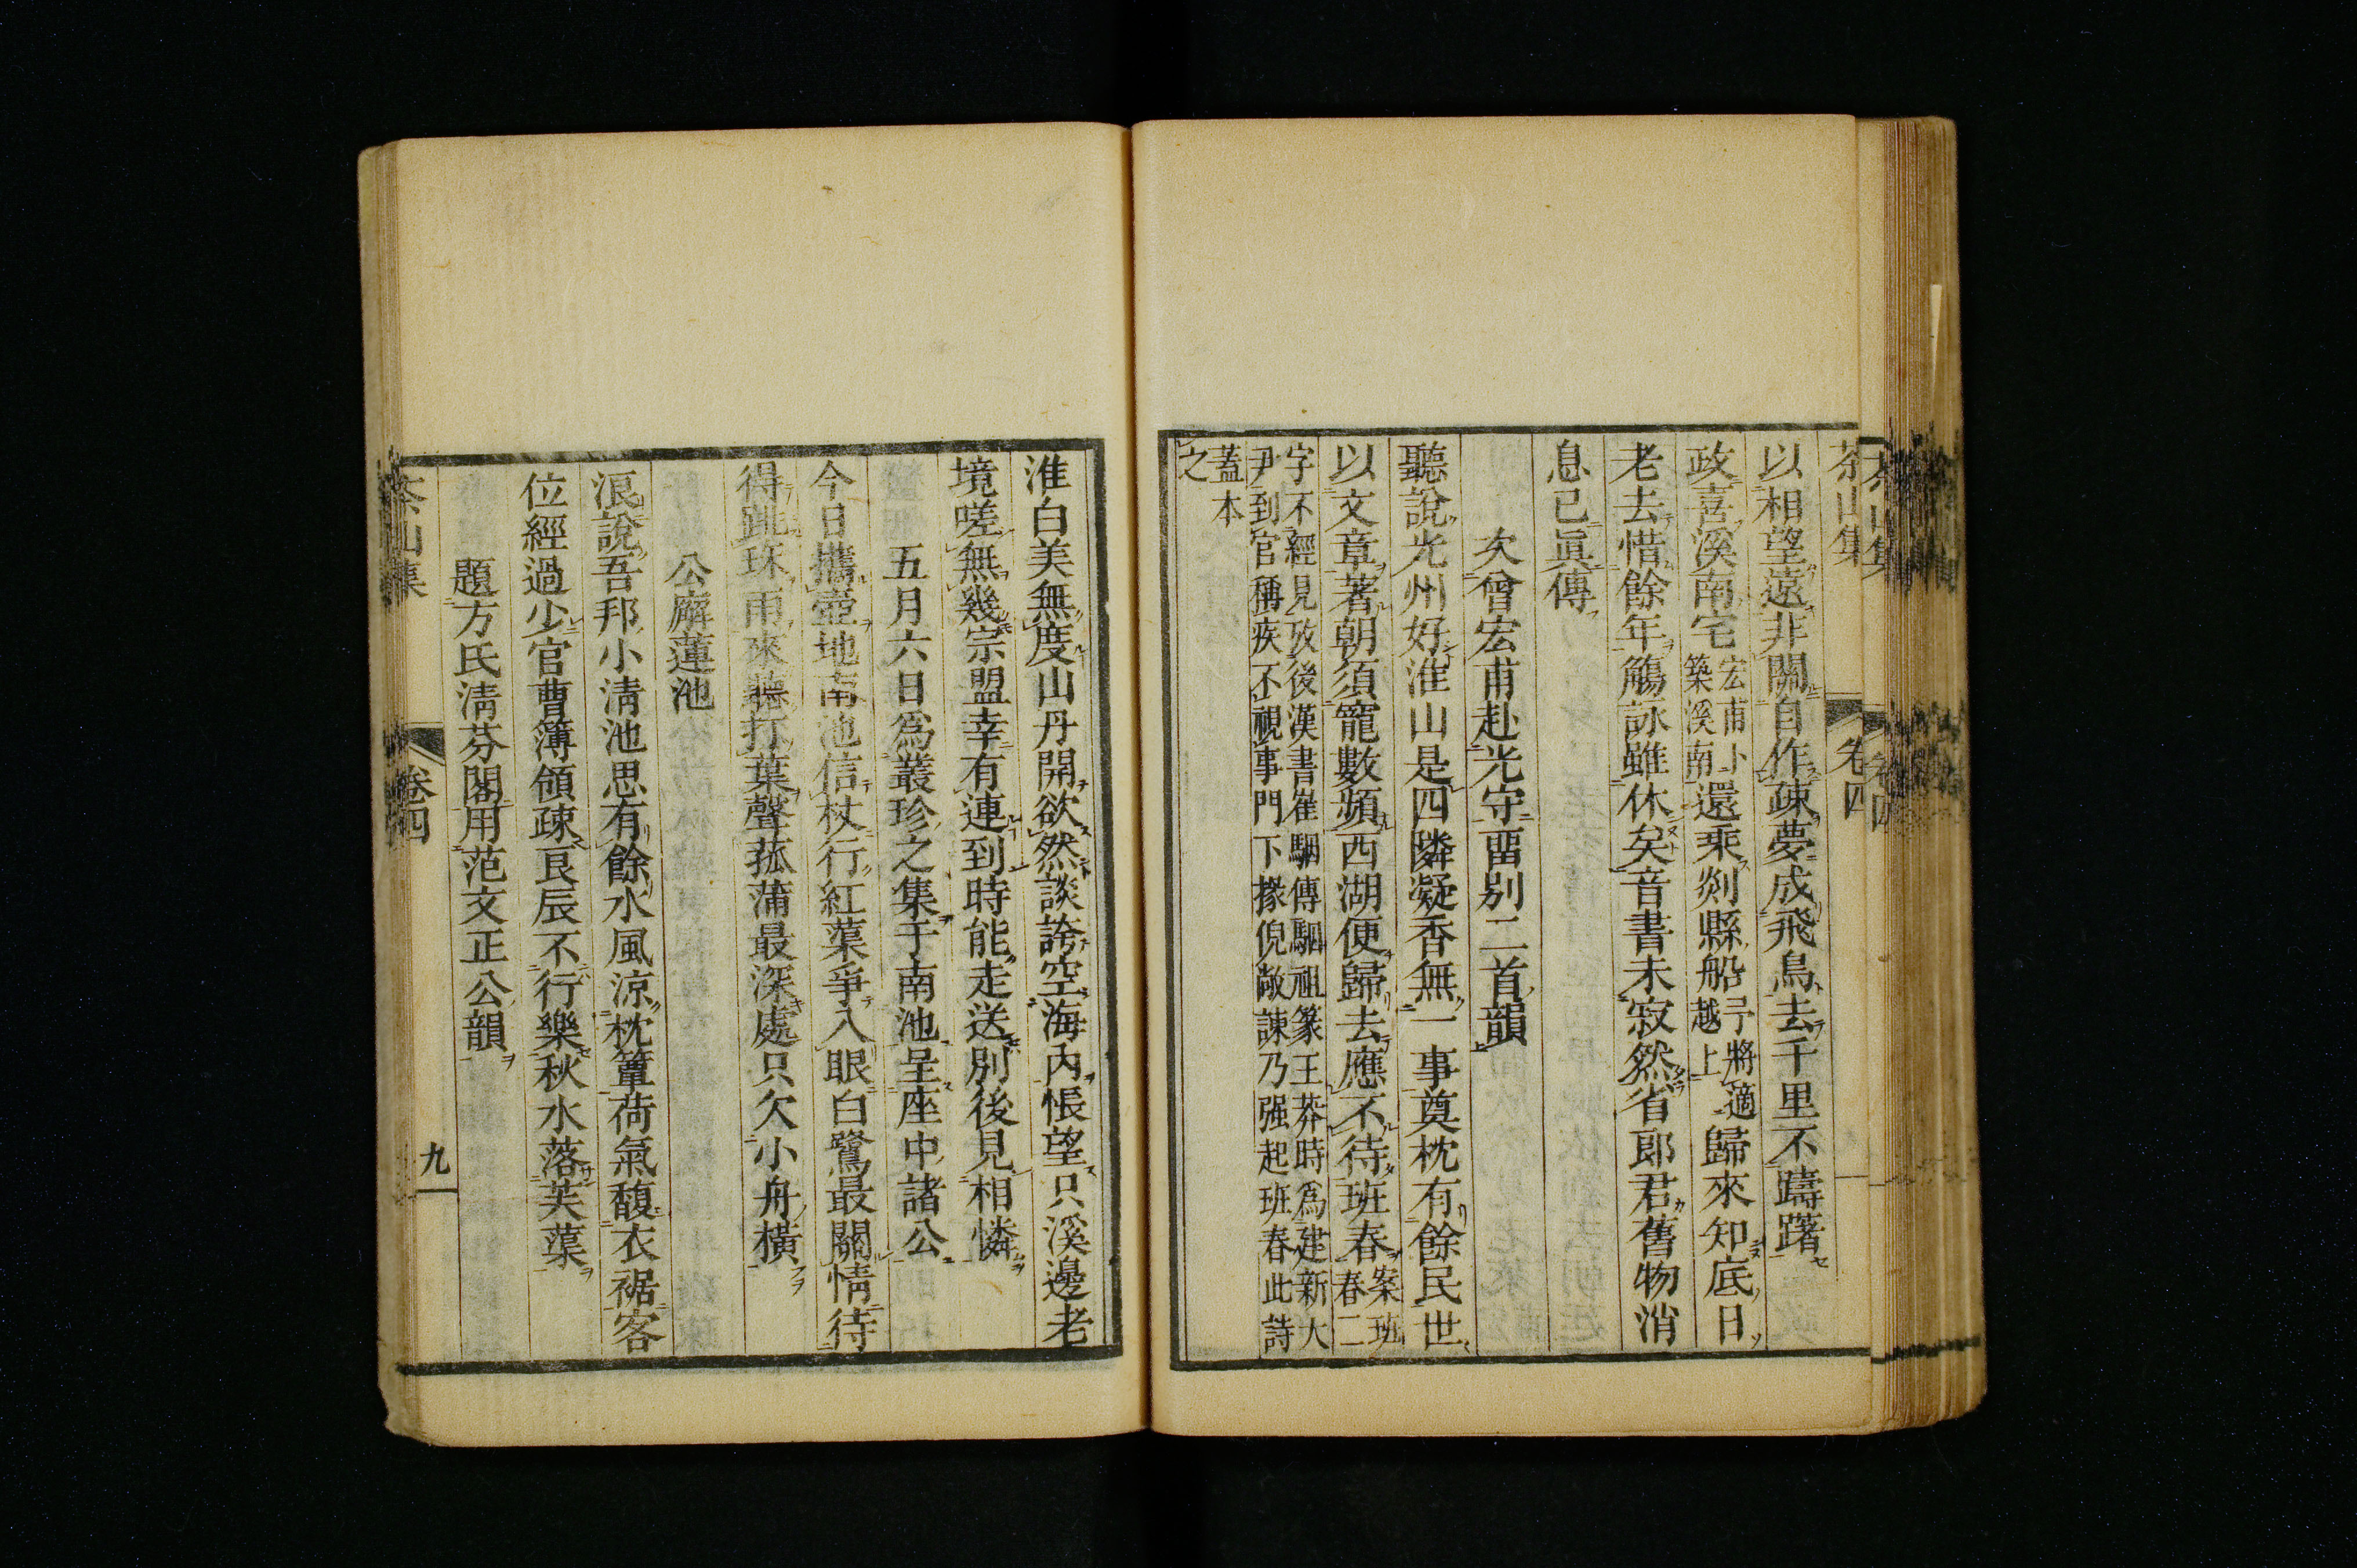 茶山集 卷四
以相望遠非關自作疎夢成飛鳥去千里不躊躇
政喜溪南宅宏甫卜築溪南還乘剡縣船予將適越上歸來知底日
老去惜餘年觴詠雖休矣音書未寂然省郎君舊物消
息已眞傳
次曾宏甫赴光守畱別二首韻
聽說光州好淮山是四隣凝香無一事奠枕有餘民世
以文章著朝須寵數頻西湖便歸去應不待班春案班春二
字不經見攷後漢書崔駰傳駰祖篆王莽時爲建新大
尹到官稱疾不視事門下掾倪敞諫乃强起班春此詩
蓋本
之
淮白美無度山丹開欲然談誇空海內悵望只溪邊老
境嗟無幾宗盟幸有連到時能走送別後見相憐
五月六日爲叢珍之集于南池呈座中諸公
今日攜壺地南池信杖行紅蕖爭入眼白鷺最關情待
得跳珠雨來聽打葉聲菰蒲最深處只欠小舟橫
公廨蓮池
浪說吾邦小清池思有餘水風涼枕簟荷氣馥衣裾客
位經過少官曹簿領疎良辰不行樂秋水落芙蕖
題方氏清芬閣用范文正公韻
茶山集 卷四 九